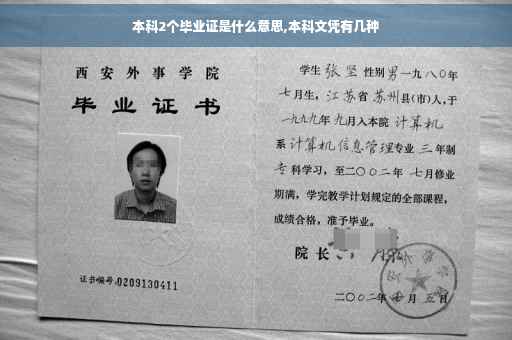 本科2个毕业证是什么意思,本科文凭有几种
西安外事学院
毕业证书
证书编号:0209130411
学生 张坚 性别 男 一九八〇年
七月生，江苏省 苏州 县(市)人，于
一九九九年 九月入本院 计算机
系 计算机信息管理专业 三 年制
专 科学习，至二〇〇二年 七月修业
期满，学完教学计划规定的全部课程，
成绩合格，准予毕业。
院长
二〇〇二年 月 五日